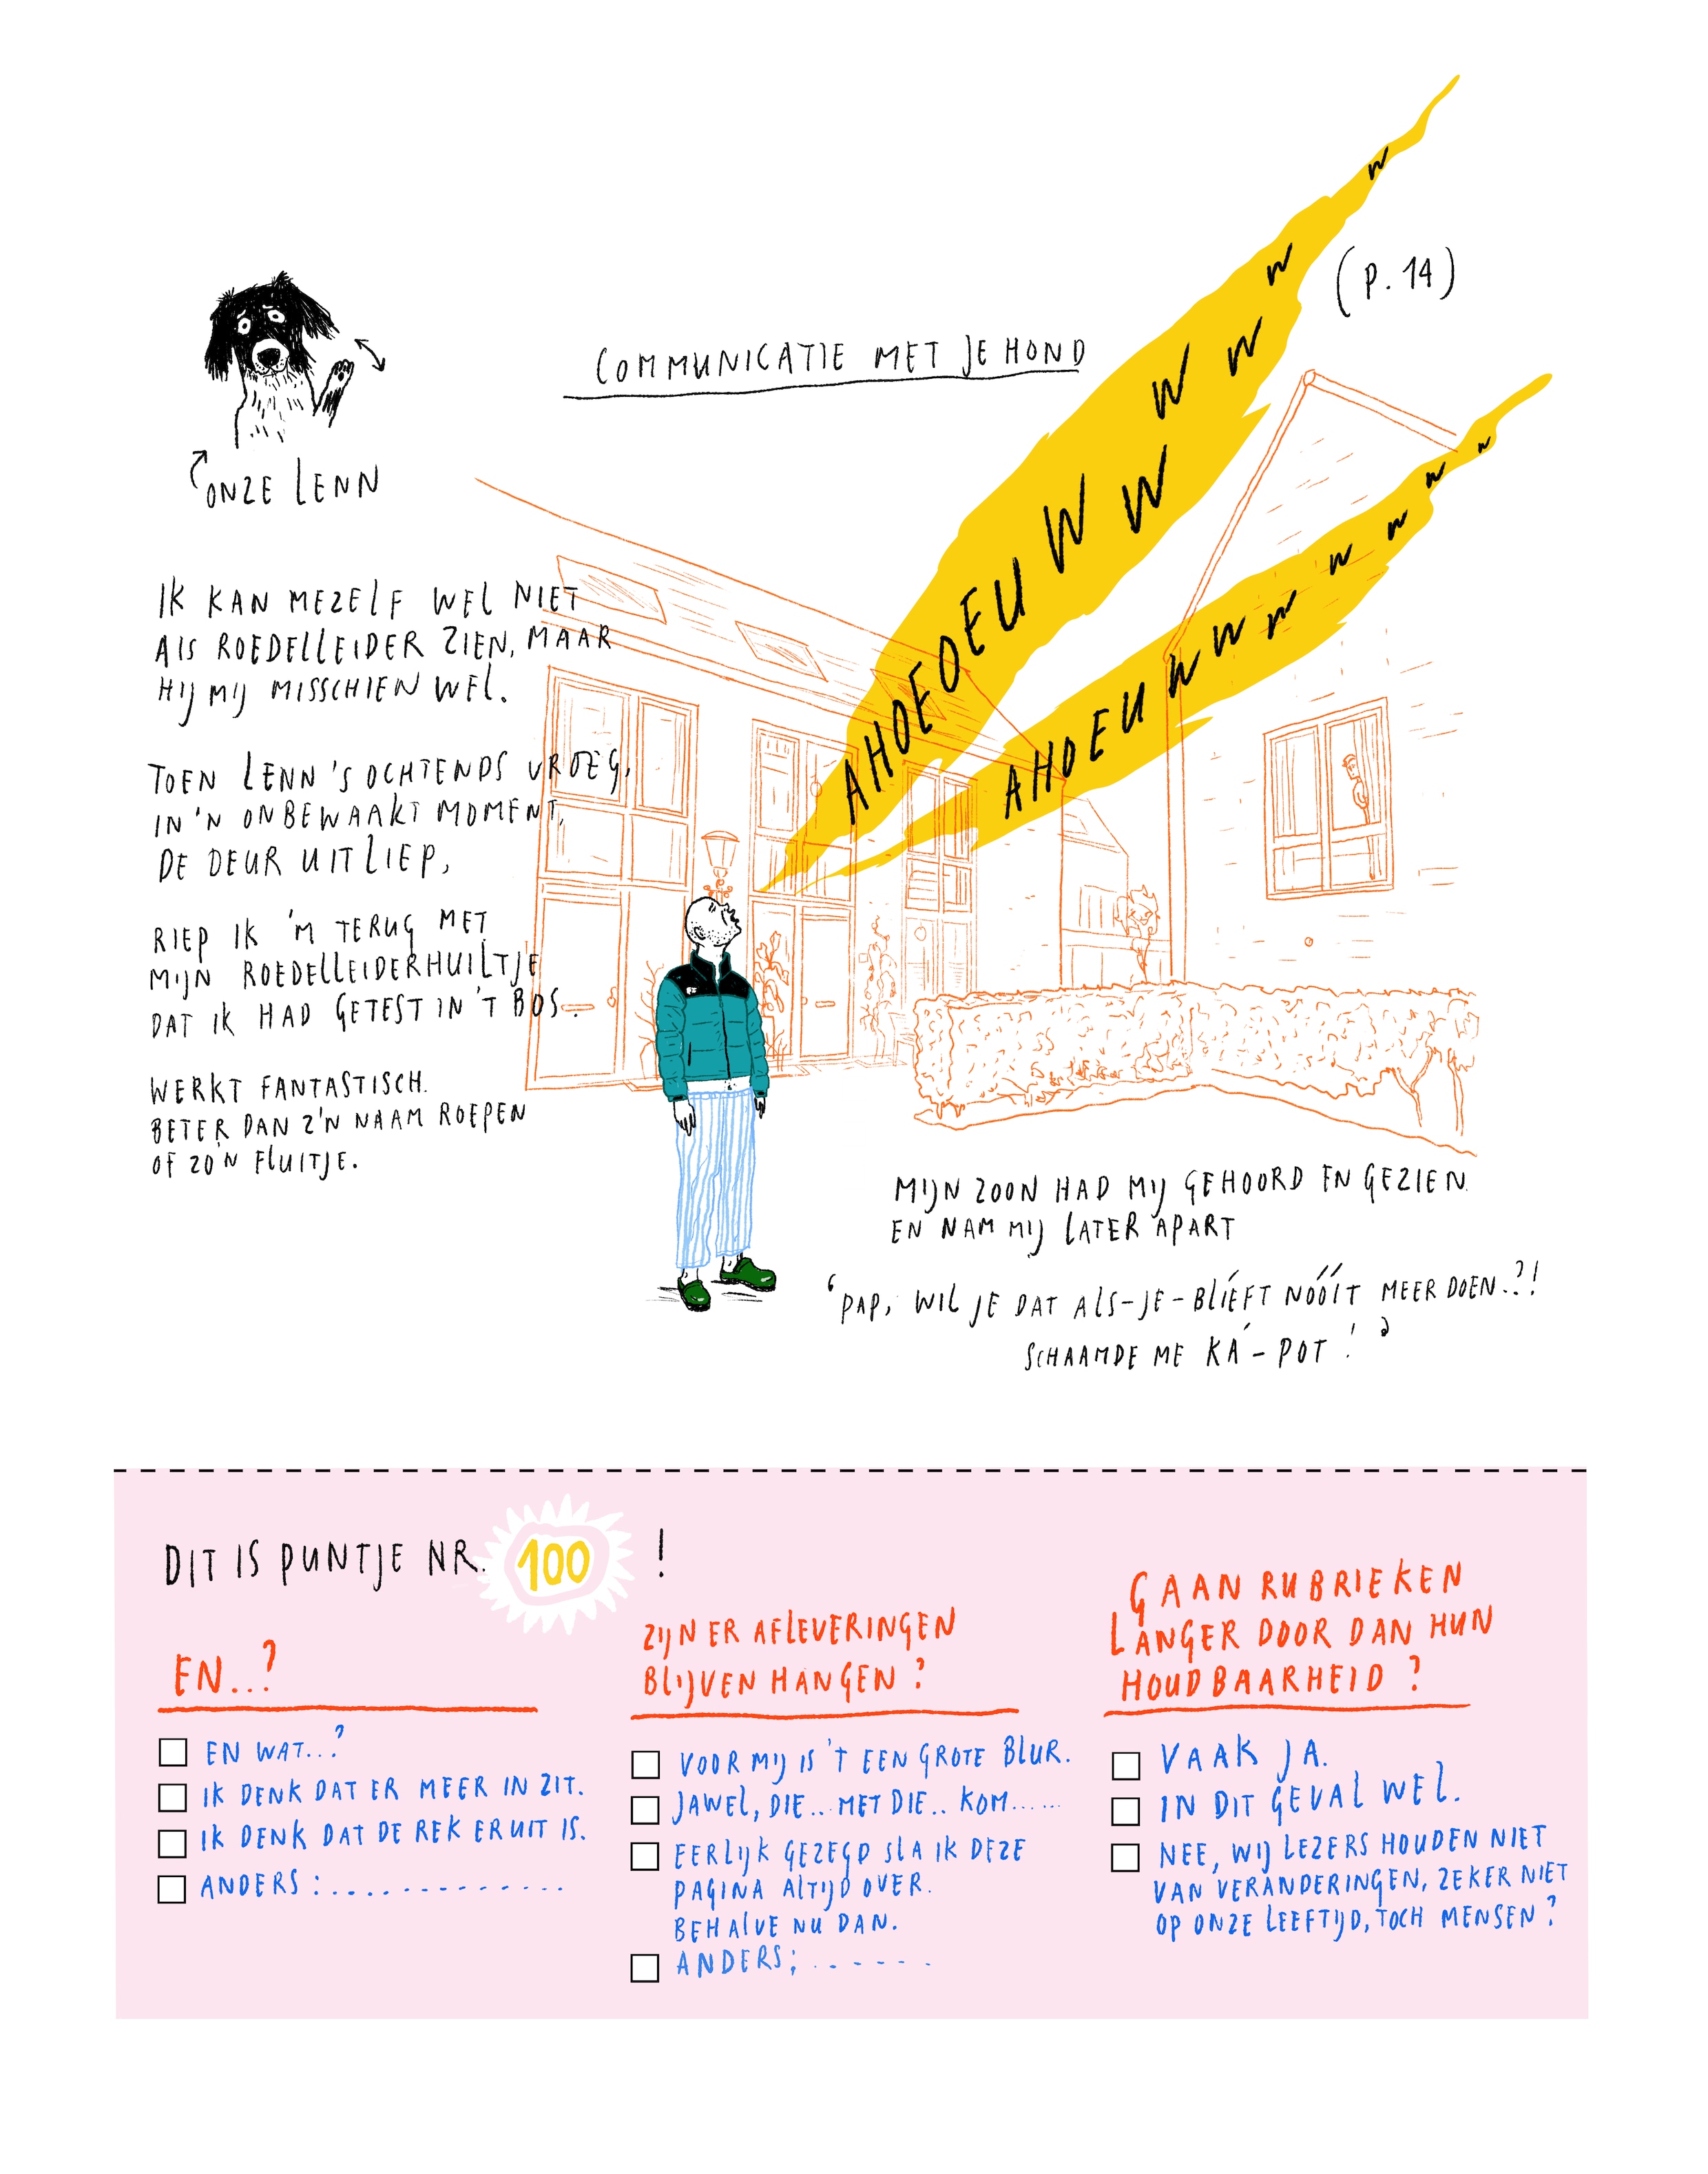 (P. 14)
COMMUNICATIE MET JE HOND
ONZE LENN
AHOEOEUWWWWWW
AHOEUWWWWWWW
IK KAN MEZELF WEL NIET
ALS ROEDELLEIDER ZIEN, MAAR
HIJ MIJ MISSCHIEN WEL.
TOEN LENN 'S OCHTENDS VROEG,
IN 'N ONBEWAAKT MOMENT,
DE DEUR UITLIEP,
RIEP IK 'M TERUG MET
MIJN ROEDELLEIDERHUILTJE
DAT IK HAD GETEST IN 'T BOS.
WERKT FANTASTISCH.
BETER DAN Z'N NAAM ROEPEN
OF ZO'N FLUITJE.
MIJN ZOON HAD MIJ GEHOORD EN GEZIEN
EN NAM MIJ LATER APART
'PAP, WIL JE DAT ALS-JE-BLÍEFT NÓÓÍT MEER DOEN..?!
SCHAAMDE ME KÁ-POT!'
DIT IS PUNTJE NR. 100!
EN...?
EN WAT...?
IK DENK DAT ER MEER IN ZIT.
IK DENK DAT DE REK ERUIT IS.
ANDERS:..............
ZIJN ER AFLEVERINGEN
BLIJVEN HANGEN?
VOOR MIJ IS 'T EEN GROTE BLUR.
JAWEL, DIE.. MET DIE.. KOM......
EERLIJK GEZEGD SLA IK DEZE
PAGINA ALTIJD OVER.
BEHALVE NU DAN.
ANDERS: ......
GAAN RUBRIEKEN
LANGER DOOR DAN HUN
HOUDBAARHEID?
VAAK JA.
IN DIT GEVAL WEL.
NEE, WIJ LEZERS HOUDEN NIET
VAN VERANDERINGEN, ZEKER NIET
OP ONZE LEEFTIJD, TOCH MENSEN?